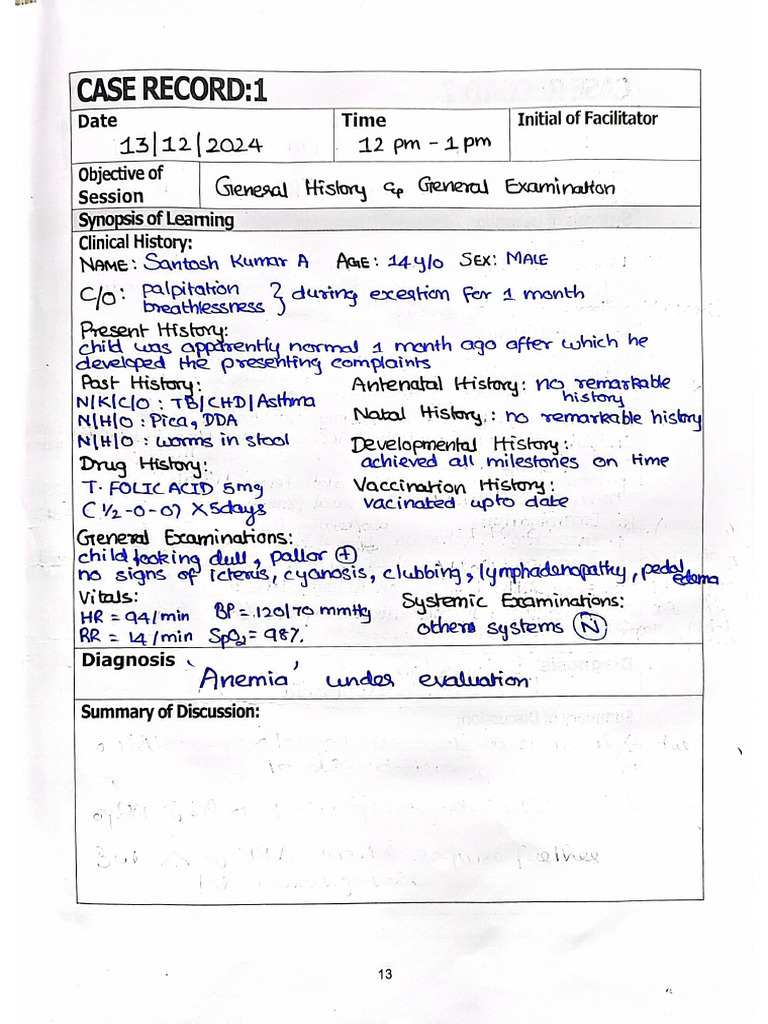 CASE RECORD:1
Date Time Initial of Facilitator
13/12/2024 12 pm - 1 pm
Objective of Session General History & General Examination
Synopsis of Learning
Clinical History:
NAME: Santosh Kumar A AGE: 14 y/o SEX: MALE
C/O: palpitation
breathlessness } during exertion for 1 month
Present History:
child was apparently normal 1 month ago after which he
developed the presenting complaints
Past History:
N/K/C/O : TB/CHD/Asthma
N/H/O : Pica, DDA
N/H/O : worms in stool
Drug History:
T. FOLIC ACID 5mg
(1/2-0-0) X 5days
Antenatal History: no remarkable
history
Natal History.: no remarkable history
Developmental History:
achieved all milestones on time
Vaccination History:
vacinated upto date
General Examinations:
child looking dull, pallor (+)
no signs of icterus, cyanosis, clubbing, lymphadenopathy, pedal
edema
Vitals:
HR = 94/min BP = 120/70 mmHg
RR = 14/min SpO2 = 98%.
Systemic Examinations:
others systems (N)
Diagnosis
'Anemia' under evaluation
Summary of Discussion:
13